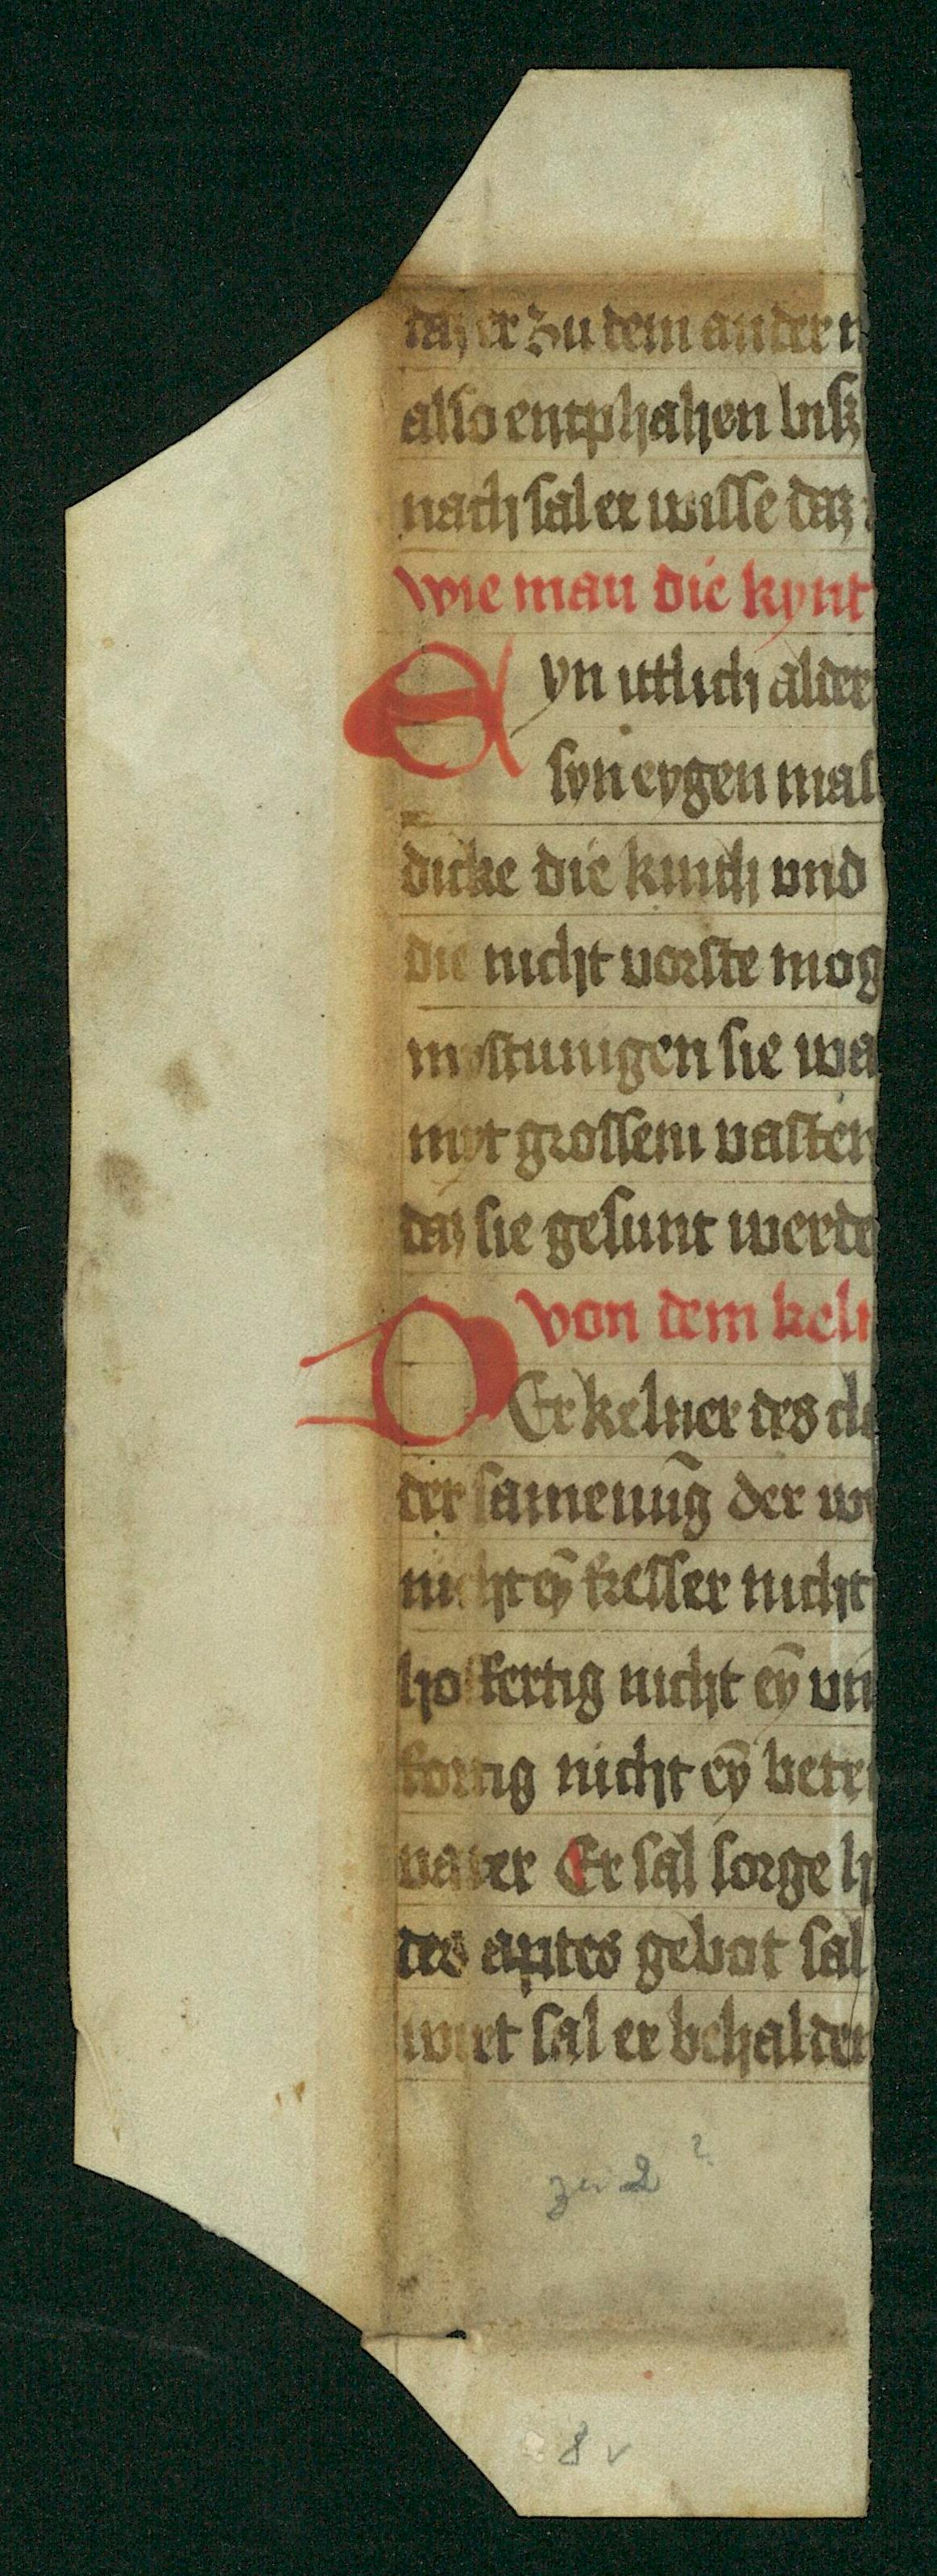 daz er zu dem ander n
also entphahen bisz
nach sal er wisse daz
wie man die kynt
Eyn itlich alder
syn eygen mas
dicke die kinth vnd
die nicht vorste mog
mystunigen sie wa
myt grossem vasten
daz sie gesunt werde
von dem keln
DEr kelner des clo
der samenūg der w
nicht eȳ fresser nicht
hoffertig nicht eȳ vn
fortig nicht eȳ betr
vater Er sal sorge h
des aptes gebot sal
wirt sal er behalden
zu 2 ?
8 v